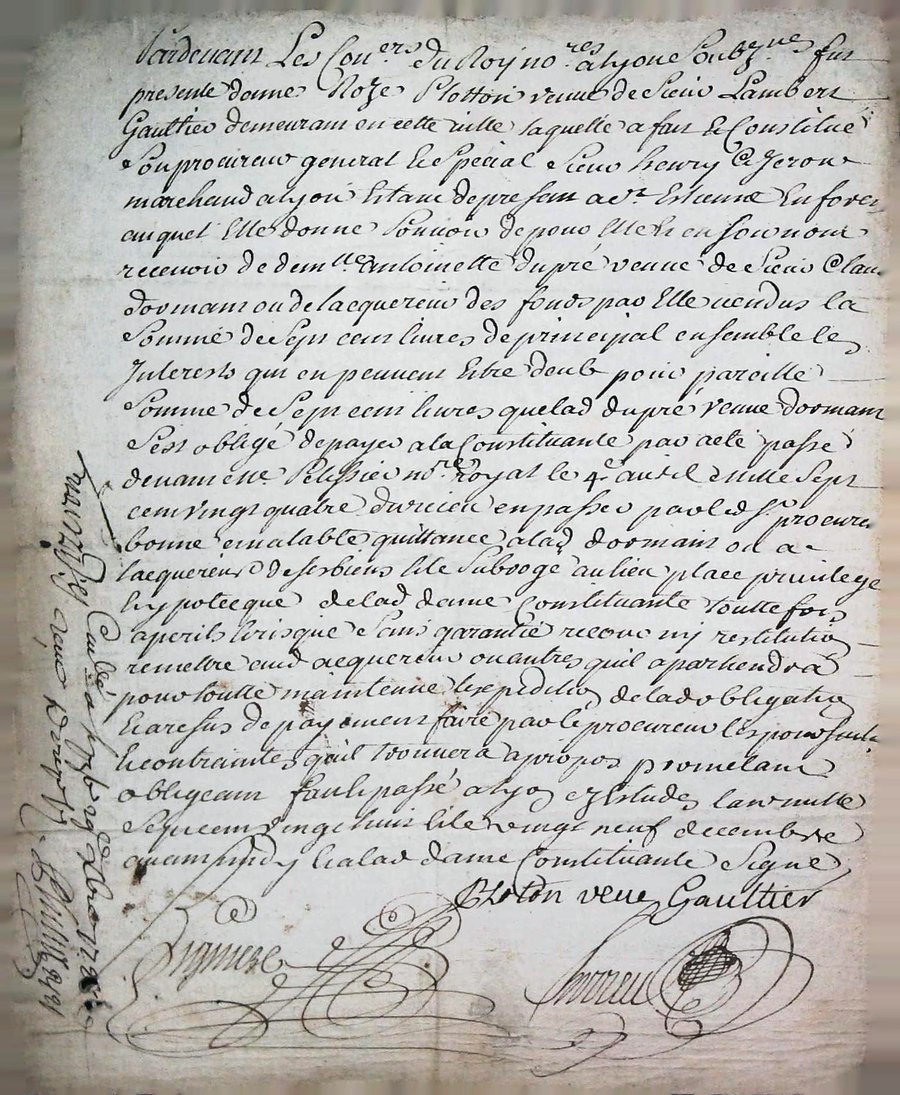 Pardevant Les Con.ers du Roy no.res a lyon Soubz.nes fut
presente dame Roze Plotton veuve de Sieur Lambert
Gaultier demeurant en cette ville laquelle a fait & Constitué
Son procureur general & Special Sieur henry
marchand a lyon Estant de present a St Estienne En forez
auquel Elle donne Pouvoir de pour Elle & en Son nom
recevoir de dem.lle antoinette dupré veuve de Sieur Clau
dormant ou de lacquereur des fonds par Elle vendus la
Somme de Sept cent livres de principal ensemble les
Interests qui en peuvent Estre deub pour pareille
Somme de Sept cent livres que lad dupré veuve dormant
Sest obligé de payer a la Constituante par acte passé
devant me Pelissier no.re royal le 4e avril mille Sept
cent vingt quatre du receu en passer par led Sr procureur
bonne & valable quittance a lad dormant ou a
lacquereur de Ses biens & le Subrogé au lieu place privilege
& hypotecque de lad dame Constituante touttefois
a perils & risque Sans garantie recours ny restitution
remettre aud acquereur ou autres quil apartiendra
pour toutte maintenue lexpedition de lad obligation
& a refus de payement faire par le procureur les poursuites
& contraintes quil trouvera a propos promettant
obligeant fait & passé a lyon ez Estudes lan mille
Sept cent vingt huit & le vingt neuf decembre
avant midy & a lad dame Constituante Signé
Ploton veuve Gaultier